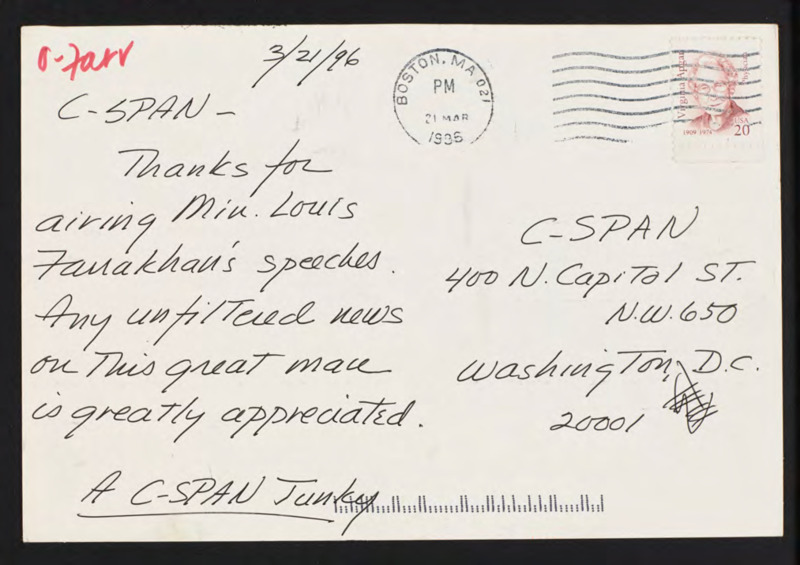 O-Farr
3/21/96
C-SPAN –
Thanks for
airing Min. Louis
Farrakhan's speeches.
Any unfiltered news
on This great man
is greatly appreciated.
A C-SPAN Junky
BOSTON, MA 021
PM
21 MAR
1996
Virginia Apgar
Physician
1909-1974
USA
20
C-SPAN
400 N. Capitol ST.
N.W. 650
Washington, D.C.
20001